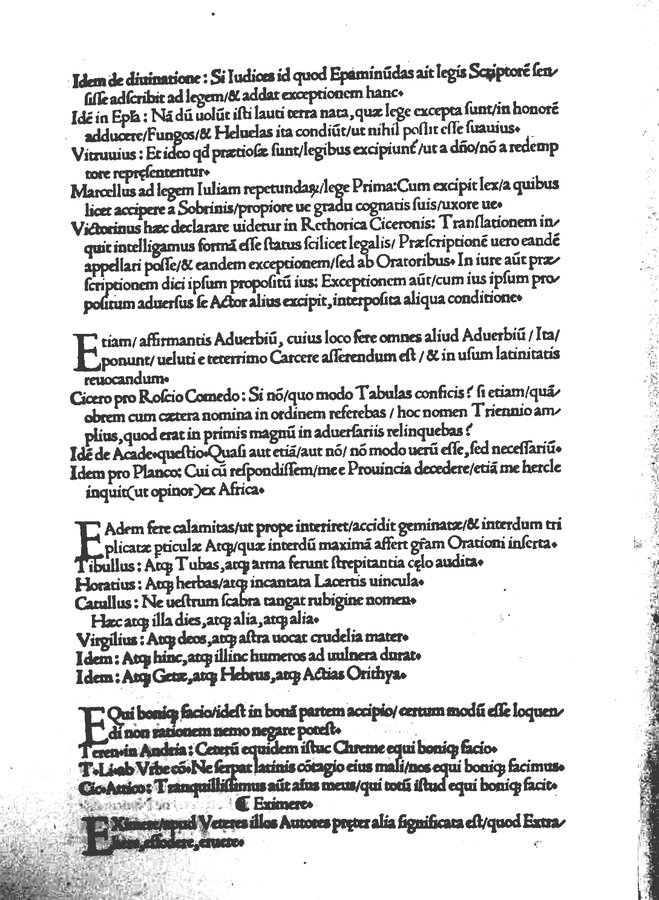 Idem de diuinatione : Si Iudices id quod Epaminūdas ait legis Scriptorē sen⸗
sisse adscribit ad legem/& addat exceptionem hanc.
Idē in Epſa : Nā dū uolūt isti lauti terra nata, quæ lege excepta sunt/in honorē
adducere/Fungos/& Heluelas ita condiūt/ut nihil possit esse suauius.
Vitruuius : Et ideo qd prætiosæ sunt/legibus excipiunt᷑/ut a dño/nō a redemp
tore repręsententur.
Marcellus ad legem Iuliam repetundaꝝ/lege Prima:Cum excipit lex/a quibus
licet accipere a Sobrinis/propiore ue gradu cognatis suis/uxore ue.
Victorinus hæc declarare uidetur in Rethorica Ciceronis: Translationem in⸗
quit intelligamus formā esse status scilicet legalis/ Præscriptionē uero eandē
appellari posse/& eandem exceptionem/sed ab Oratoribus. In iure aūt præ⸗
scriptionem dici ipsum propositū ius: Exceptionem aūt/cum ius ipsum pro⸗
positum aduersus se Actor alius excipit, interposita aliqua conditione.
Etiam/ affirmantis Aduerbiū, cuius loco fere omnes aliud Aduerbiū / Ita/
ponunt/ ueluti e teterrimo Carcere asserendum est / & in usum latinitatis
reuocandum.
Cicero pro Roscio Comedo : Si nō/quo modo Tabulas conficis? si etiam/quā⸗
obrem cum cætera nomina in ordinem referebas / hoc nomen Triennio am⸗
plius, quod erat in primis magnū in aduersariis relinquebas?
Idē de Acade.questio.Quasi aut etiā/aut nō/ nō modo uerū esse, sed necessariū.
Idem pro Planco: Cui cū respondissem/me e Prouincia decedere/etiā me hercle
inquit(ut opinor)ex Africa.
EAdem fere calamitas/ut prope interiret/accidit geminatæ/& interdum tri
plicatæ ꝑticulæ Atqꝫ/quæ interdū maximā affert gr̄am Orationi inserta.
Tibullus : Atqꝫ Tubas, atqꝫ arma ferunt strepitantia cęlo audita.
Horatius : Atqꝫ herbas/atqꝫ incantata Lacertis uincula.
Catullus : Ne uestrum scabra tangat rubigine nomen.
Hæc atqꝫ illa dies, atqꝫ alia, atqꝫ alia.
Virgilius : Atqꝫ deos, atqꝫ astra uocat crudelia mater.
Idem : Atqꝫ hinc, atqꝫ illinc humeros ad uulnera durat.
Idem : Atqꝫ Getæ, atqꝫ Hebrus, atqꝫ Actias Orithya.
EQui boniqꝫ facio/idest in bonā partem accipio/ certum modū esse loquen⸗
di non rationem nemo negare potest.
Teren.in Andria : Ceterū equidem istuc Chreme equi boniqꝫ facio.
T.Li.ab Vrbe cō.Ne serpat latinis cōtagio eius mali/nos equi boniqꝫ facimus.
Cic.Attico : Tranquillissimus aūt aīus meus/qui totū istud equi boniqꝫ facit.
¶ Eximere.
EXimere/apud Veteres illos Autores pręter alia significata est/quod Extra⸗
here, effodere, eruere.